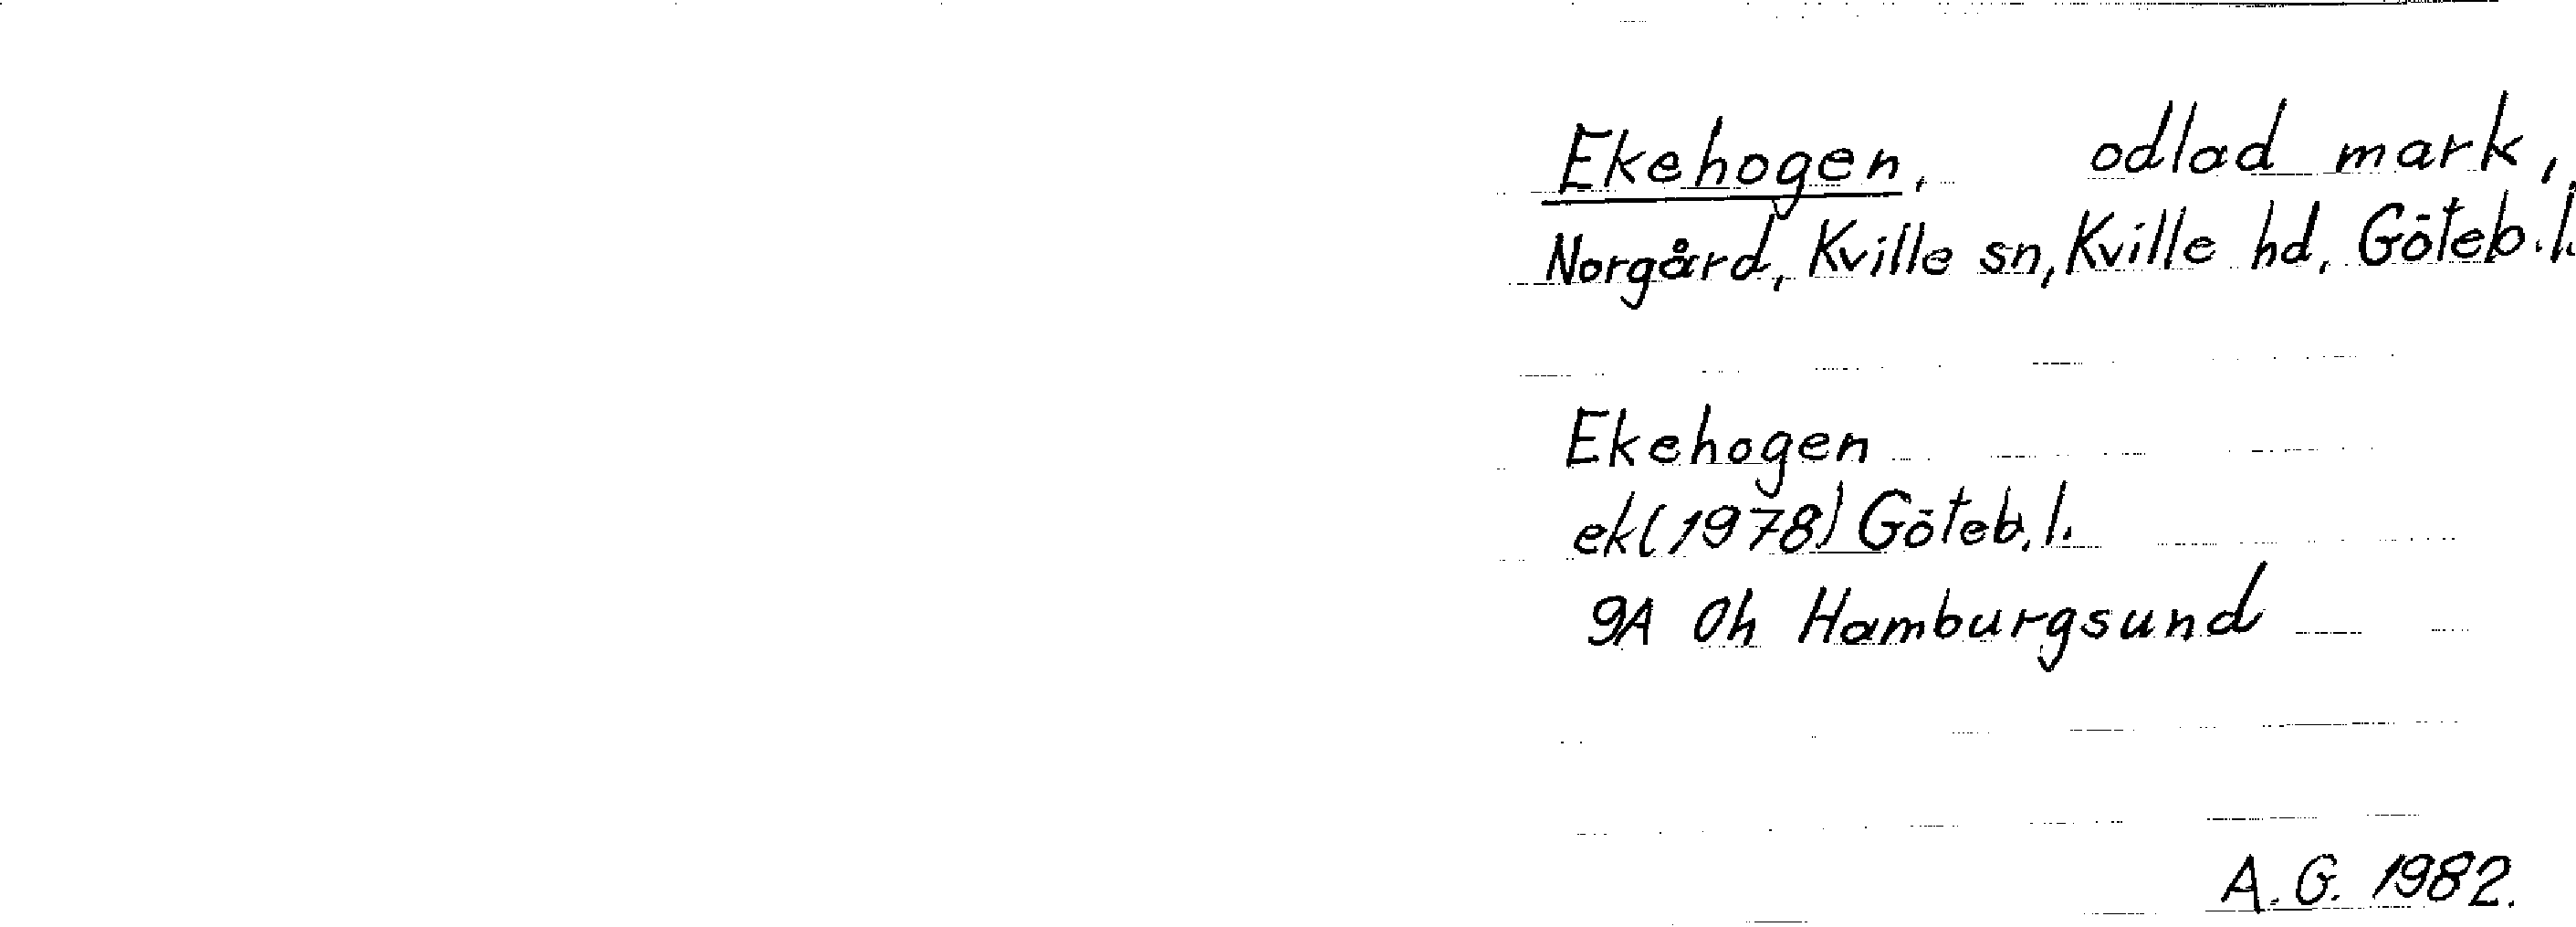 Ekehogen, odlad mark,
Norgård, Kville sn, Kville hd, Göteb. l.
Ekehogen
ek (1978) Göteb. l.
9A 0h Hamburgsund
A. G. 1982.